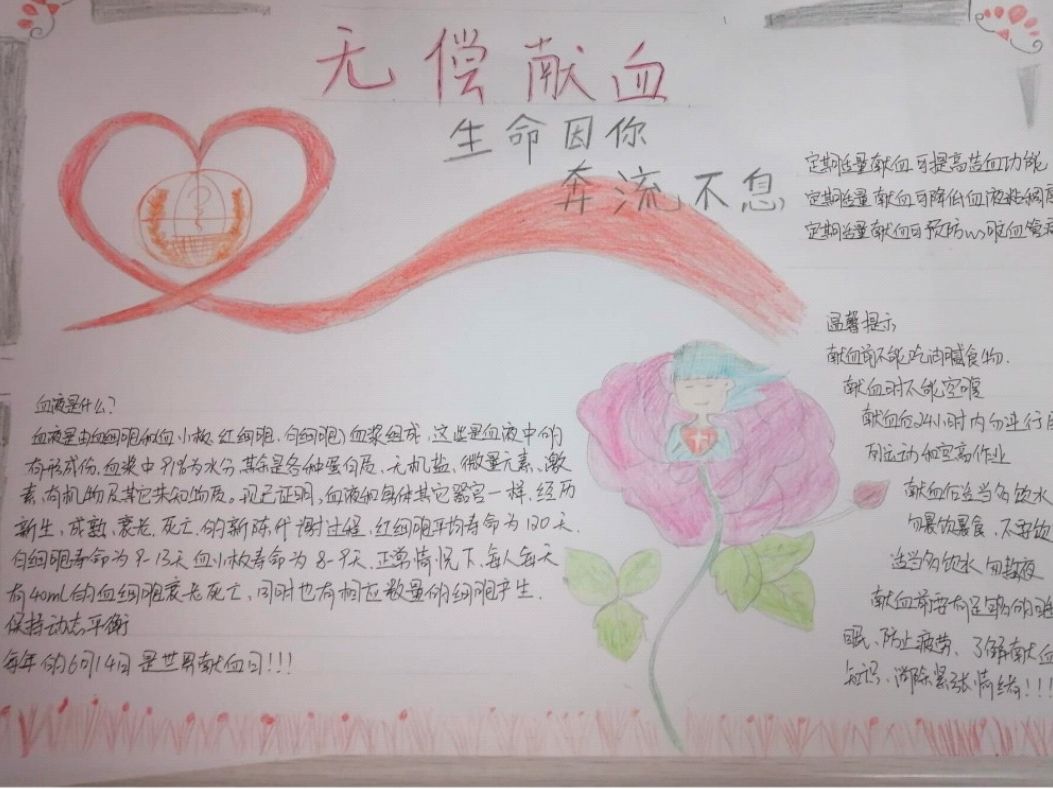 无偿献血
生命因你
奔流不息
定期适量献血可提高造血功能
定期适量献血可降低血液粘稠度
定期适量献血可预防心脏血管
温馨提示
献血前不能吃油腻食物.
献血时不能空腹
献血后24小时内勿进行
烈运动和空高作业
献血后适当多饮水
勿暴饮暴食、不要饮
适当多饮水 勿熬夜
献血前要有足够的睡
眠、防止疲劳、了解献血
知识、消除紧张情绪!!!
血液是什么?
血液是由血细胞和血小板、红细胞、白细胞)血浆组成,这些是血液中的
有形成份,血浆中91%为水分,其余是各种蛋白质、无机盐、微量元素、激
素、有机物及其它未知物质。现已证明,血液和身体其它器官一样,经历
新生,成熟,衰老,死亡,的新陈代谢过程,红细胞平均寿命为120天.
白细胞寿命为9-13天血小板寿命为8-9天.正常情况下,每人每天
有40ml的血细胞衰老死亡,同时也有相应数量的细胞产生.
保持动态平衡
每年的6月14日是世界献血日!!!